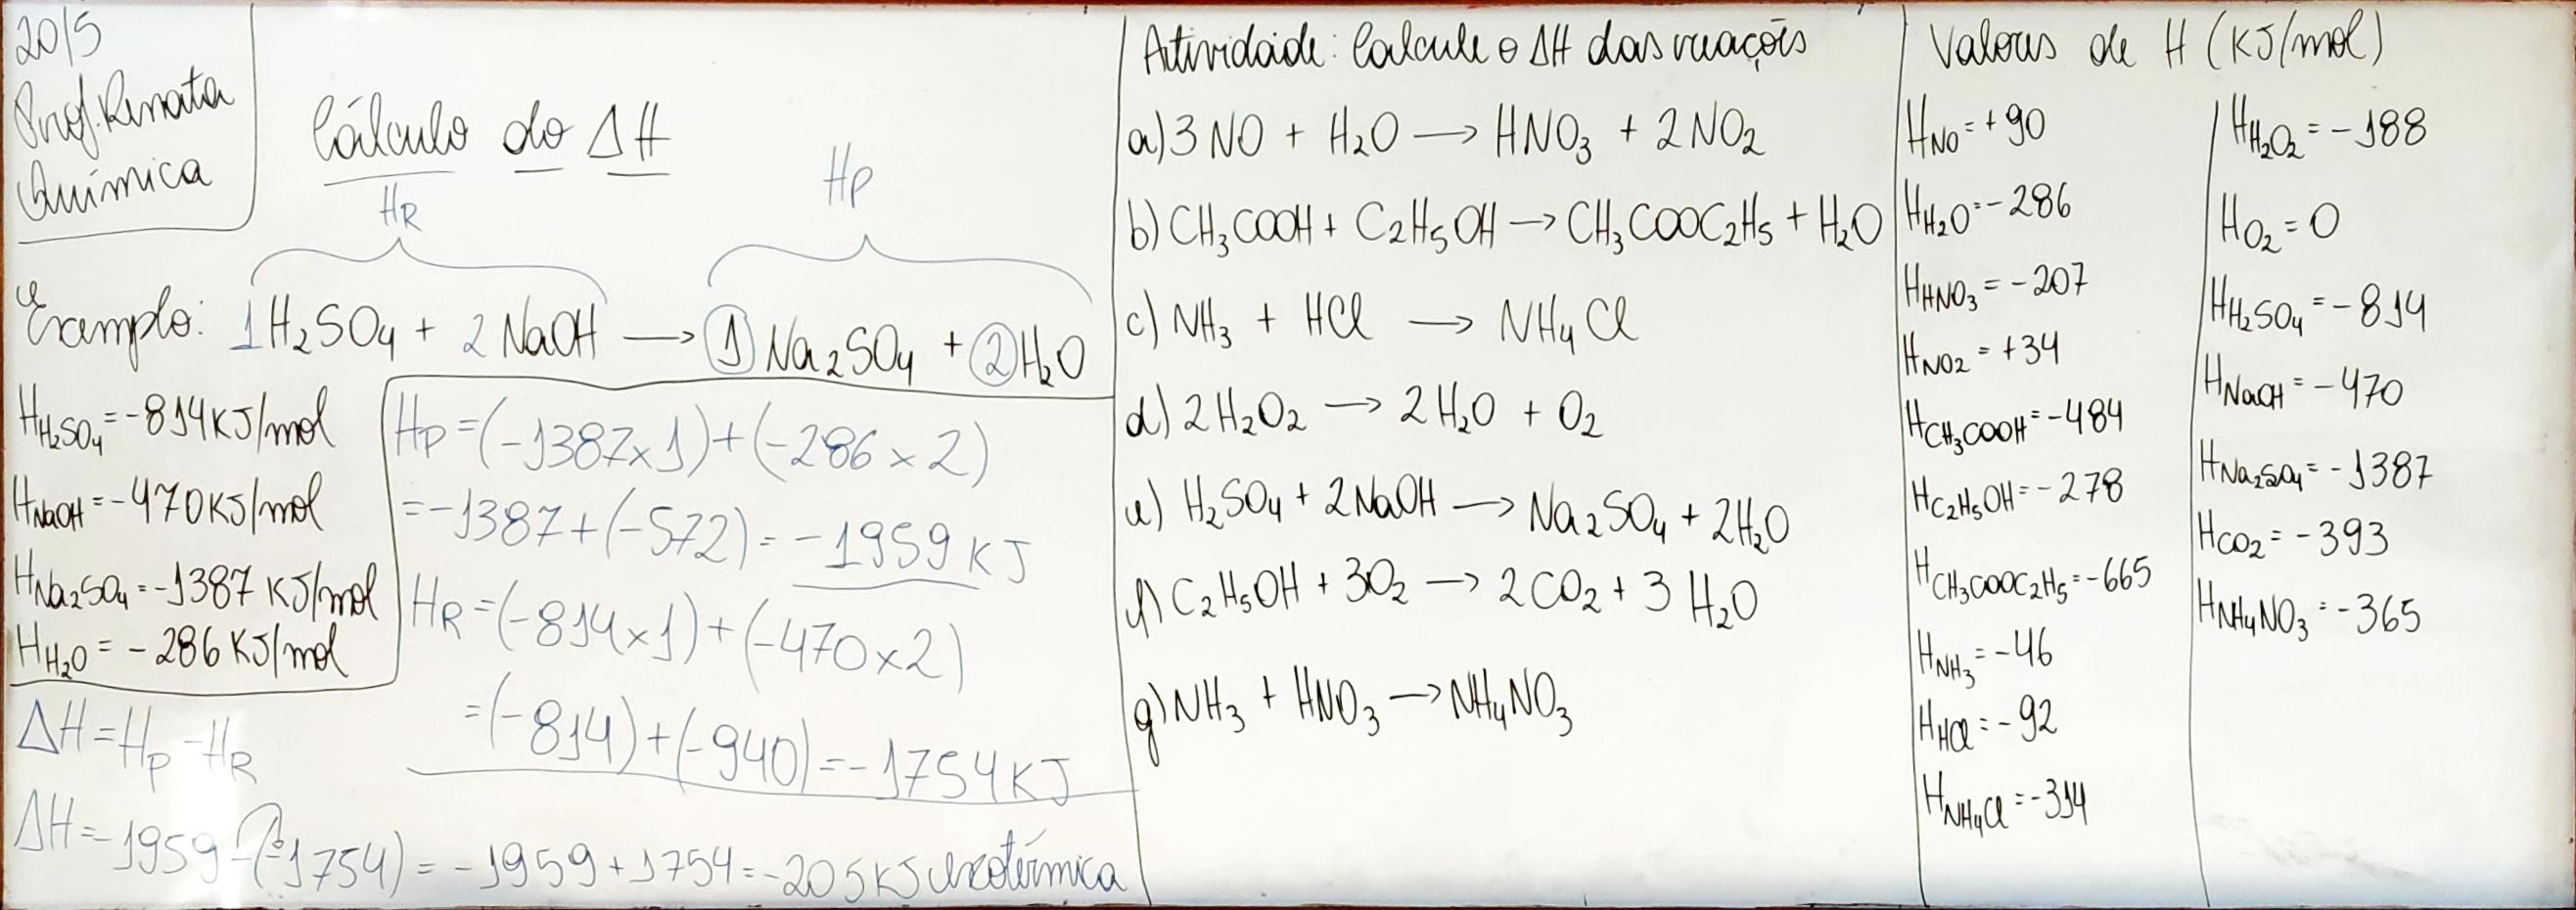 20/5
Prof. Renata
Química
Cálculo do ΔH
HR
HP
Exemplo: 1H₂SO₄ + 2 NaOH → 1 Na₂SO₄ + 2 H₂O
H_H₂SO₄ = -814 KJ/mol
H_NaOH = -470 KJ/mol
H_Na₂SO₄ = -1387 KJ/mol
H_H₂O = -286 KJ/mol
HP = (-1387x1) + (-286 x 2)
= -1387 + (-572) = -1959 KJ
HR = (-814x1) + (-470x2)
= (-814) + (-940) = -1754 KJ
ΔH = HP - HR
ΔH = -1959 - (-1754) = -1959 + 1754 = -205 KJ exotérmica
Atividade: Calcule o ΔH das reações
a) 3 NO + H₂O → HNO₃ + 2 NO₂
b) CH₃COOH + C₂H₅OH → CH₃COOC₂H₅ + H₂O
c) NH₃ + HCl → NH₄Cl
d) 2 H₂O₂ → 2 H₂O + O₂
e) H₂SO₄ + 2NaOH → Na₂SO₄ + 2H₂O
f) C₂H₅OH + 3O₂ → 2CO₂ + 3 H₂O
g) NH₃ + HNO₃ → NH₄NO₃
Valores de H (KJ/mol)
H_NO = +90
H_H₂O = -286
H_HNO₃ = -207
H_NO₂ = +34
H_CH₃COOH = -484
H_C₂H₅OH = -278
H_CH₃COOC₂H₅ = -665
H_NH₃ = -46
H_HCl = -92
H_NH₄Cl = -314
H_H₂O₂ = -188
H_O₂ = 0
H_H₂SO₄ = -814
H_NaOH = -470
H_Na₂SO₄ = -1387
H_CO₂ = -393
H_NH₄NO₃ = -365